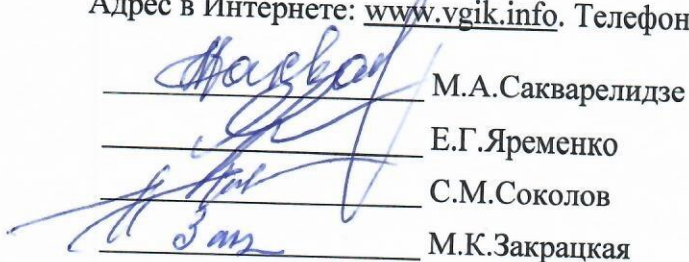 Адрес в Интернете: www.vgik.info. Телефон
М.А.Сакварелидзе
Е.Г.Яременко
С.М.Соколов
М.К.Закрацкая